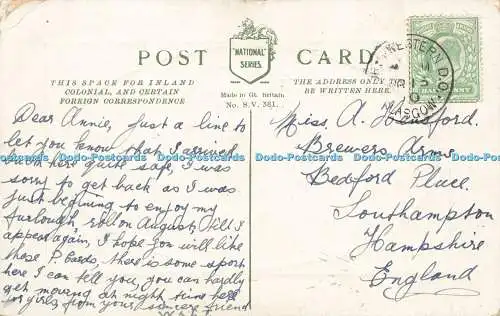 POST CARD
"NATIONAL"
SERIES
THIS SPACE FOR INLAND
COLONIAL, AND CERTAIN
FOREIGN CORRESPONDENCE
Made in Gt. Britain
No. S.V. 381.
THE ADDRESS ONLY TO
BE WRITTEN HERE.
WESTERN D.O.
GLASGOW
HALFPENNY
Dear Annie, just a line to
let you know that I arrived
back here quite safe, I was
sorry to get back as I was
just begining to enjoy my
furlough, roll on August, till I
appear again, I hope you will like
these P. Cards, there is some sport
here I can tell you, you can hardly
get moving at night time here
for girls from your sincere friend
Miss A. Hansford.
Brewers Arms
Bedford Place.
Southampton
Hampshire
England
Dodo-Postcards Dodo-Postcards Dodo-Postcards Dodo-Postcards Dodo-Postcards Dodo-Postcards